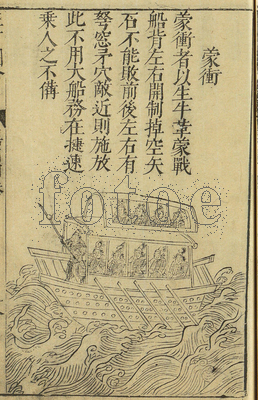 蒙衝
蒙衝者以生牛革蒙戰
船背左右開制掉空矢
石不能敗前後左右有
弩窓矛穴敵近則施放
此不用大船務在捷速
乘人之不備
fotoe